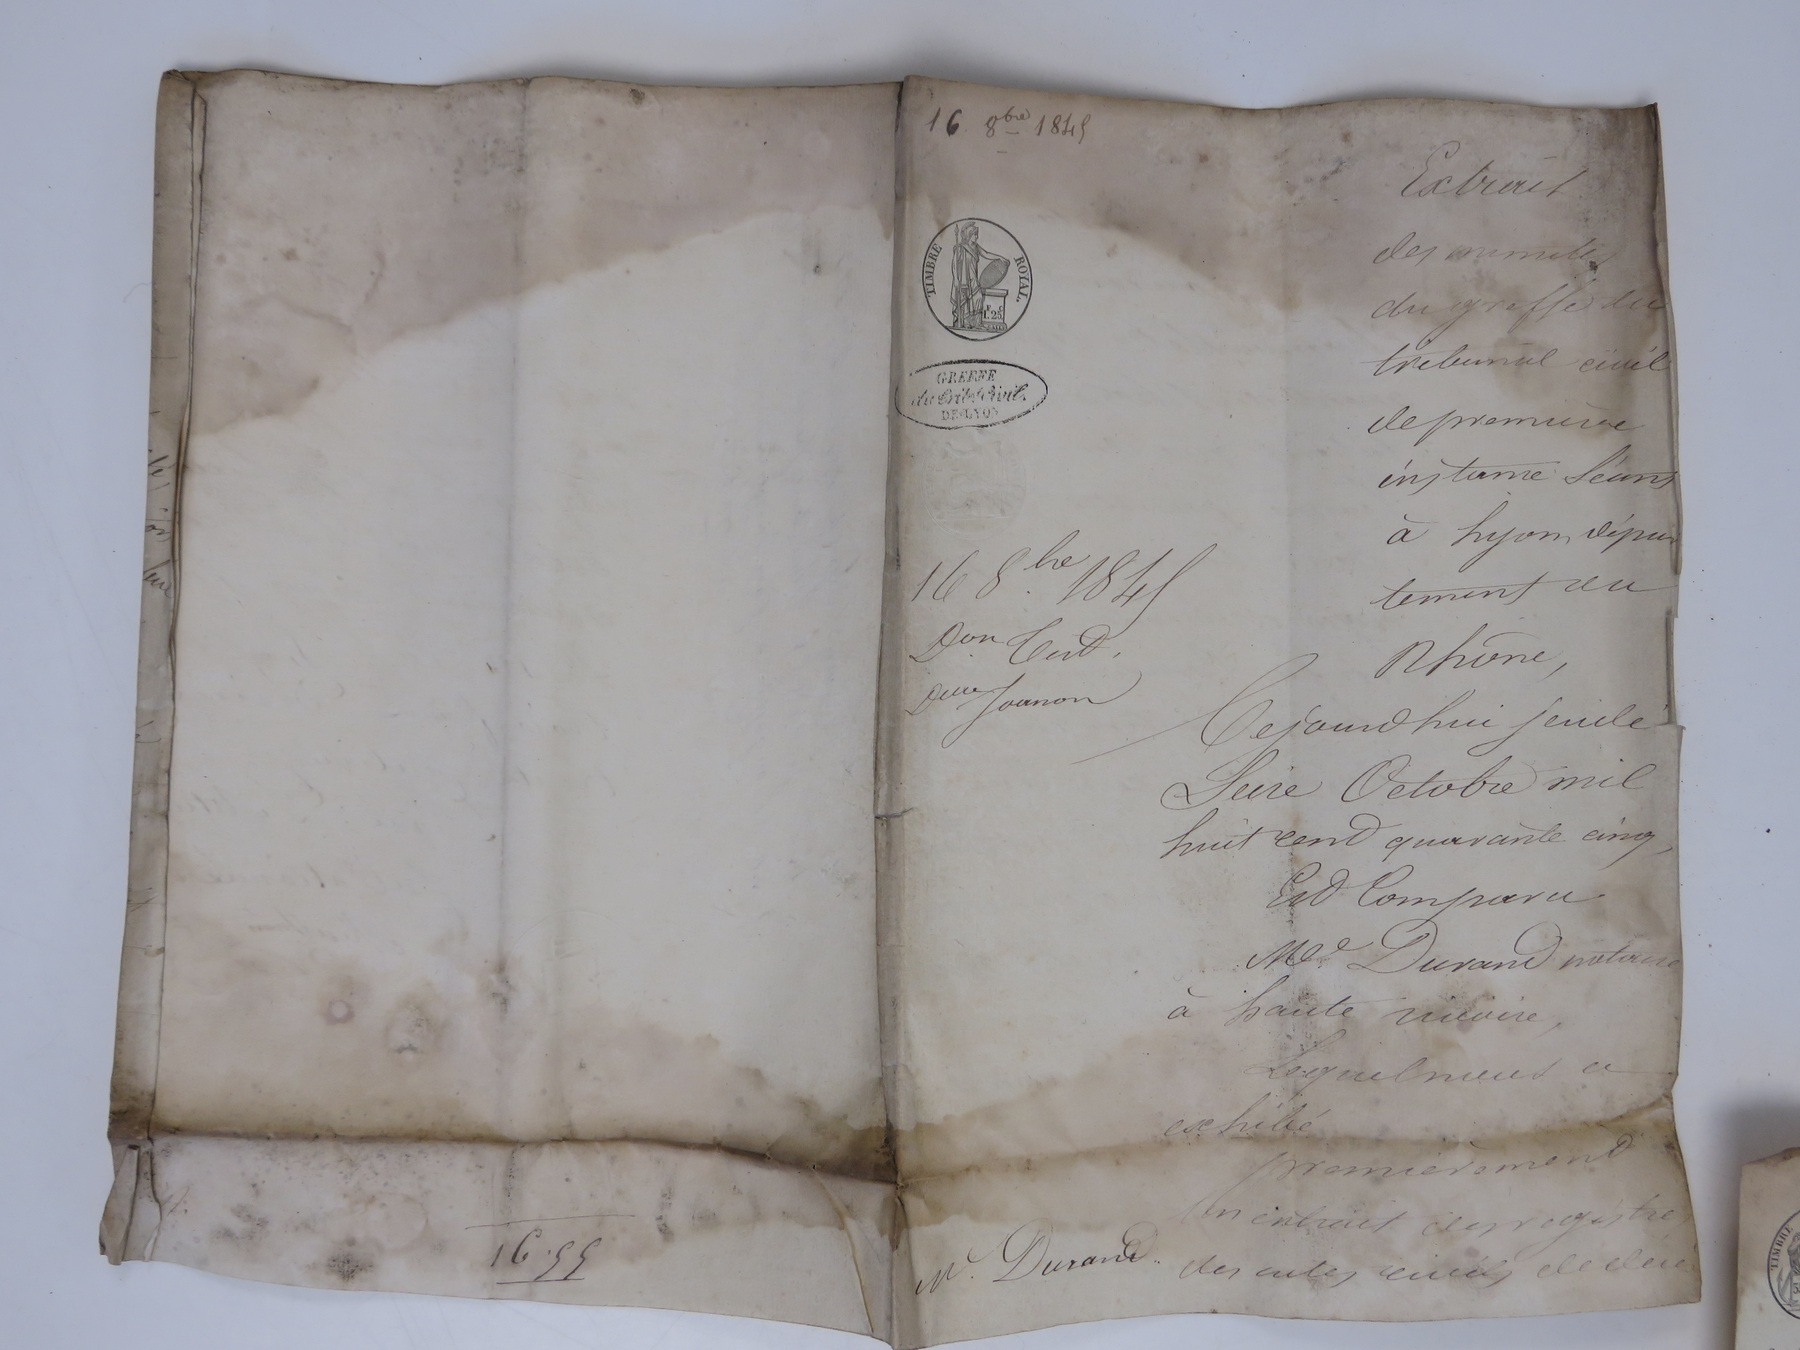 16 8bre 1845
TIMBRE ROYAL
1F. 25C
GREFFE
du Trib. Civil
DE LYON
16 8bre 1845
Don Cert.
Delle Joanon
Me. Durand
Extrait
des minutes
du greffe du
tribunal civil
de première
instance séant
à Lyon, dépar
tement du
Rhône,
Cejourd'hui jeudi
Seize Octobre mil
huit cent quarante cinq,
Est Comparu
Me. Durand notaire
à haute rivoire,
Lequel nous a
exhibé
premièrement
Un extrait des registres
des actes civils de décè
16.55
TIMBRE